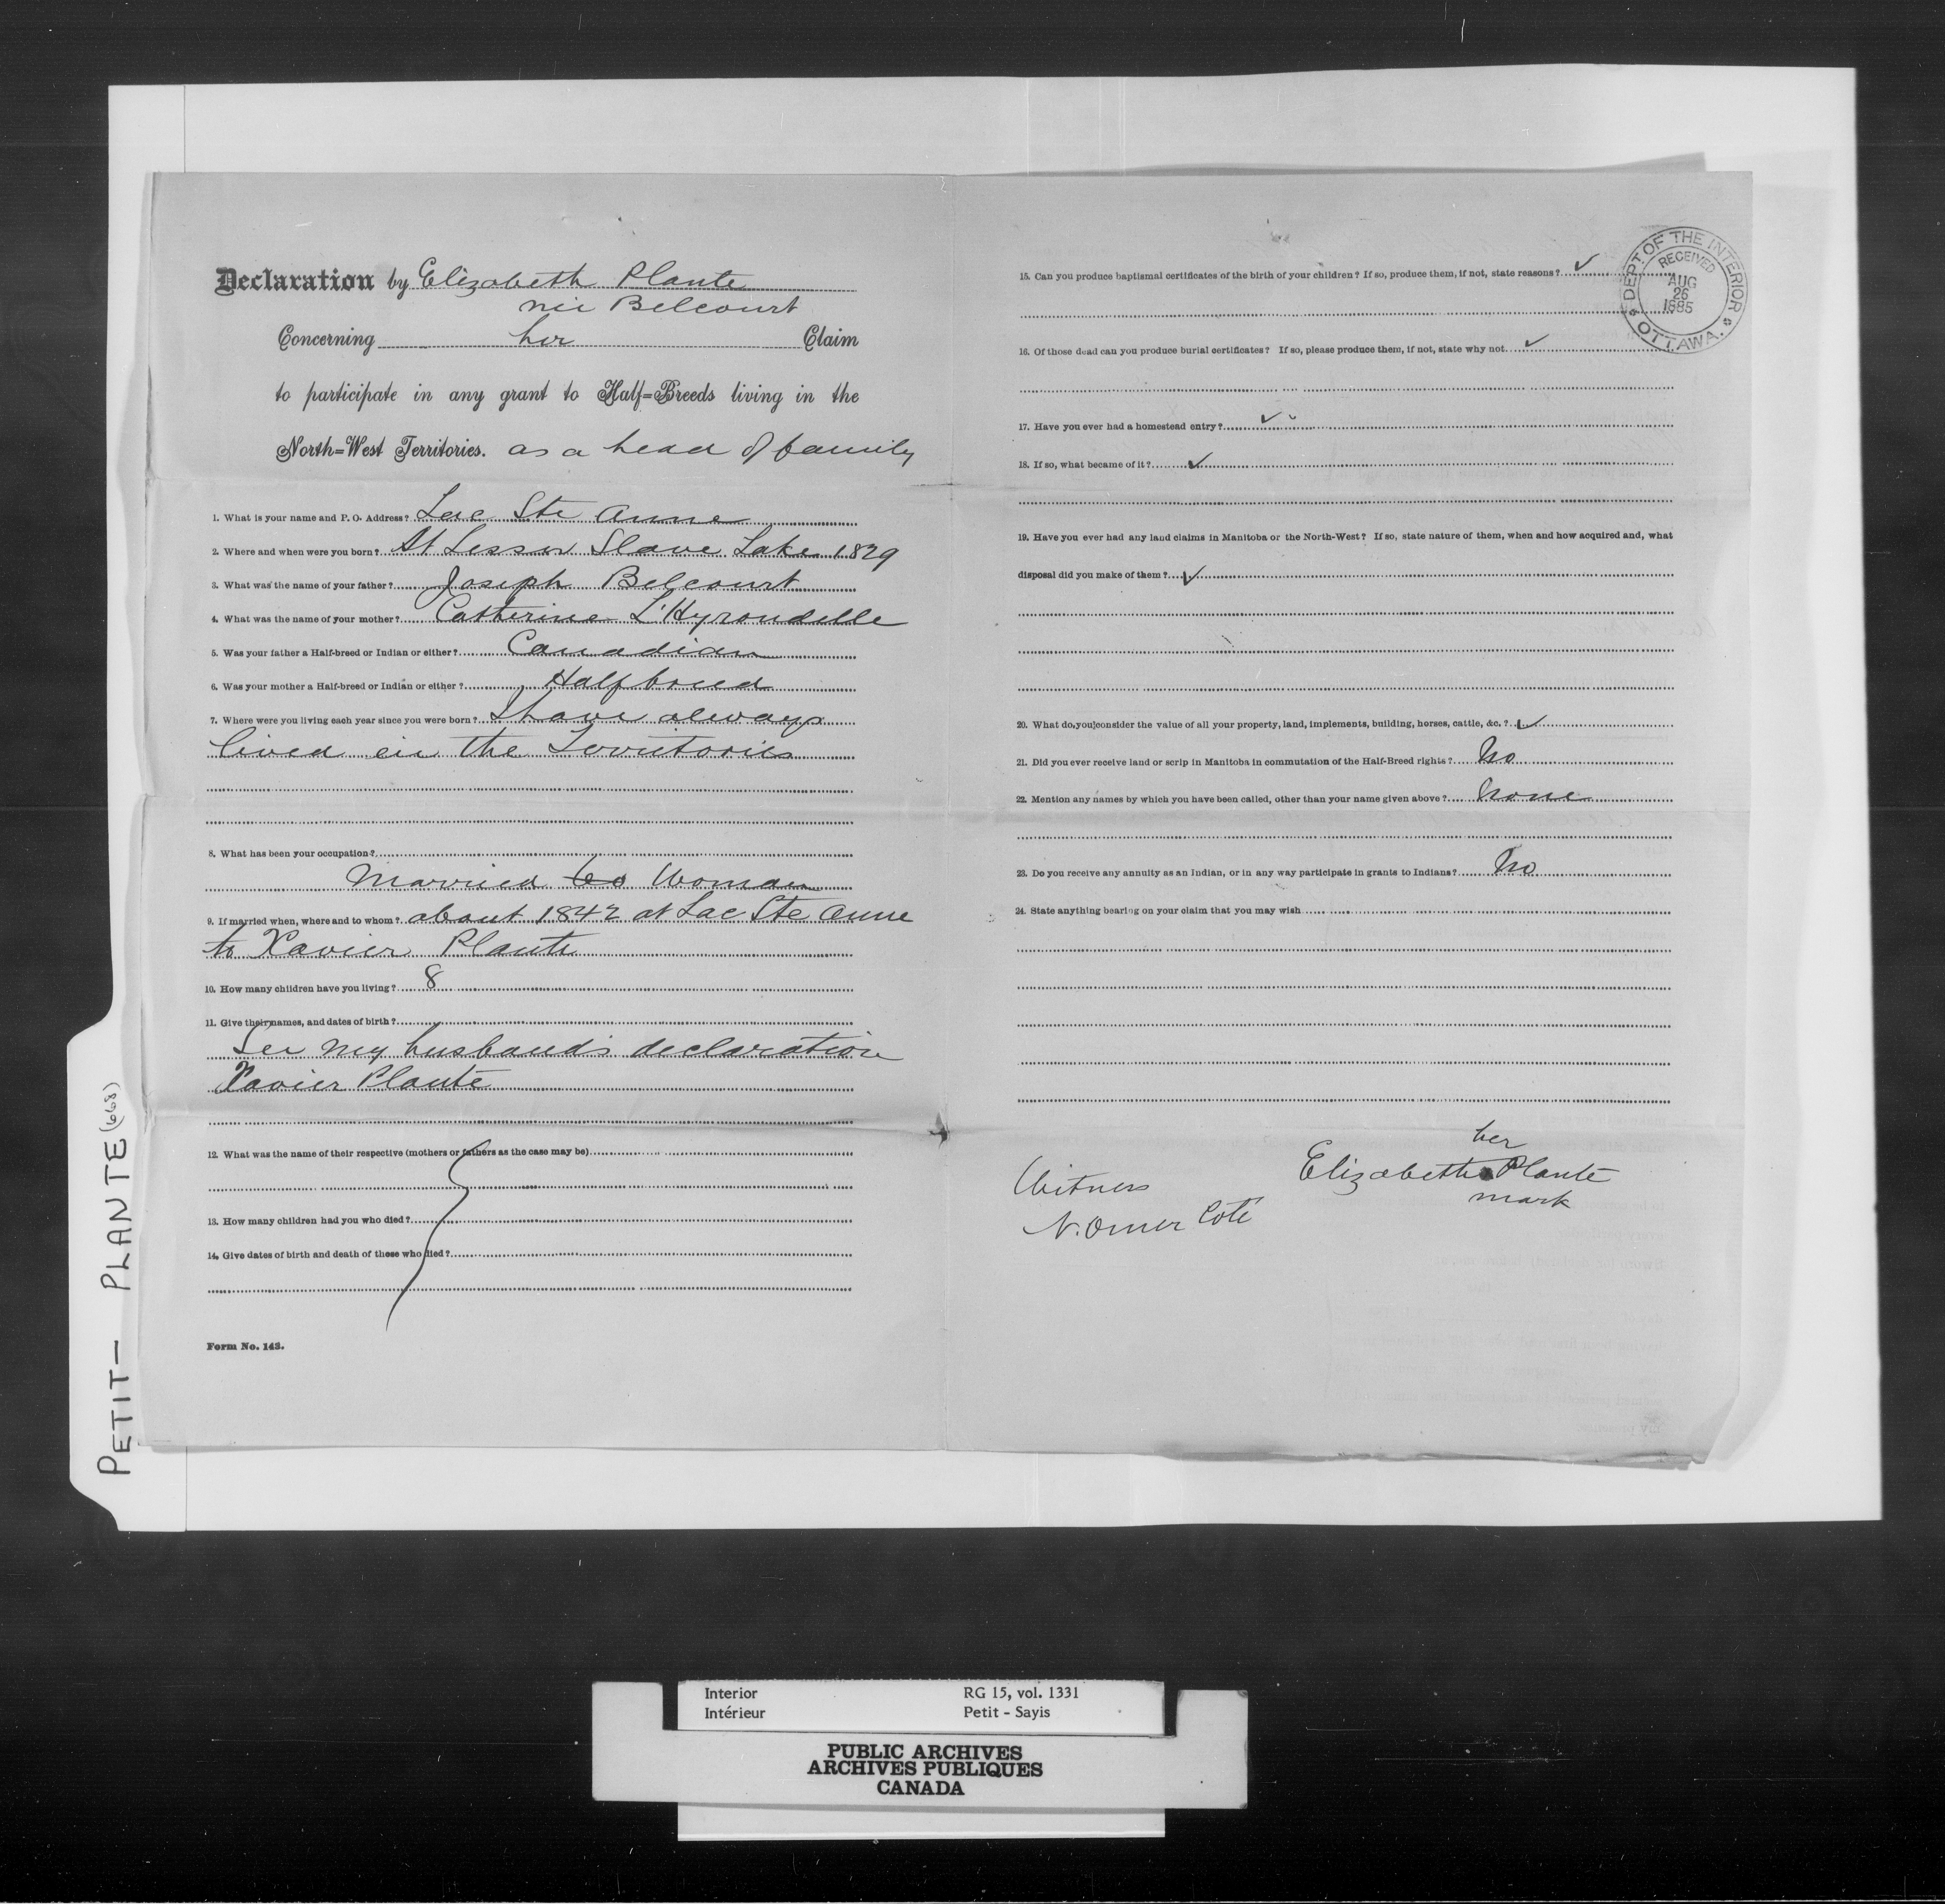 Declaration by Elizabeth Plante
née Belcourt
Concerning her Claim
to participate in any grant to Half=Breeds living in the
North=West Territories. as a head of family
1. What is your name and P. O. Address? Lac Ste Anne
2. Where and when were you born? At Lesser Slave Lake 1829
3. What was the name of your father? Joseph Belcourt
4. What was the name of your mother? Catherine L'Hyrondelle
5. Was your father a Half-breed or Indian or either? Canadian
6. Was your mother a Half-breed or Indian or either? Halfbreed
7. Where were you living each year since you were born? I have always
lived in the Territories
8. What has been your occupation?
Married Woman
9. If married when, where and to whom? about 1842 at Lac Ste Anne
to Xavier Plante
10. How many children have you living? 8
11. Give their names, and dates of birth?
See my husband's declaration
Xavier Plante
12. What was the name of their respective (mothers or fathers as the case may be)
13. How many children had you who died?
14. Give dates of birth and death of those who died?
Form No. 143.
15. Can you produce baptismal certificates of the birth of your children? If so, produce them, if not, state reasons? ✓
16. Of those dead can you produce burial certificates? If so, please produce them, if not, state why not ✓
17. Have you ever had a homestead entry? ✓
18. If so, what became of it? ✓
19. Have you ever had any land claims in Manitoba or the North-West? If so, state nature of them, when and how acquired and, what
disposal did you make of them? ✓
20. What do you consider the value of all your property, land, implements, building, horses, cattle, &c.? ✓
21. Did you ever receive land or scrip in Manitoba in commutation of the Half-Breed rights? No
22. Mention any names by which you have been called, other than your name given above? None
23. Do you receive any annuity as an Indian, or in any way participate in grants to Indians? No
24. State anything bearing on your claim that you may wish
her
Elizabeth Plante
mark
Witness
N. Omer Coté
DEPT. OF THE INTERIOR
RECEIVED
AUG
26
1885
OTTAWA.
PETIT — PLANTE (668)
Interior RG 15, vol. 1331
Intérieur Petit - Sayis
PUBLIC ARCHIVES
ARCHIVES PUBLIQUES
CANADA